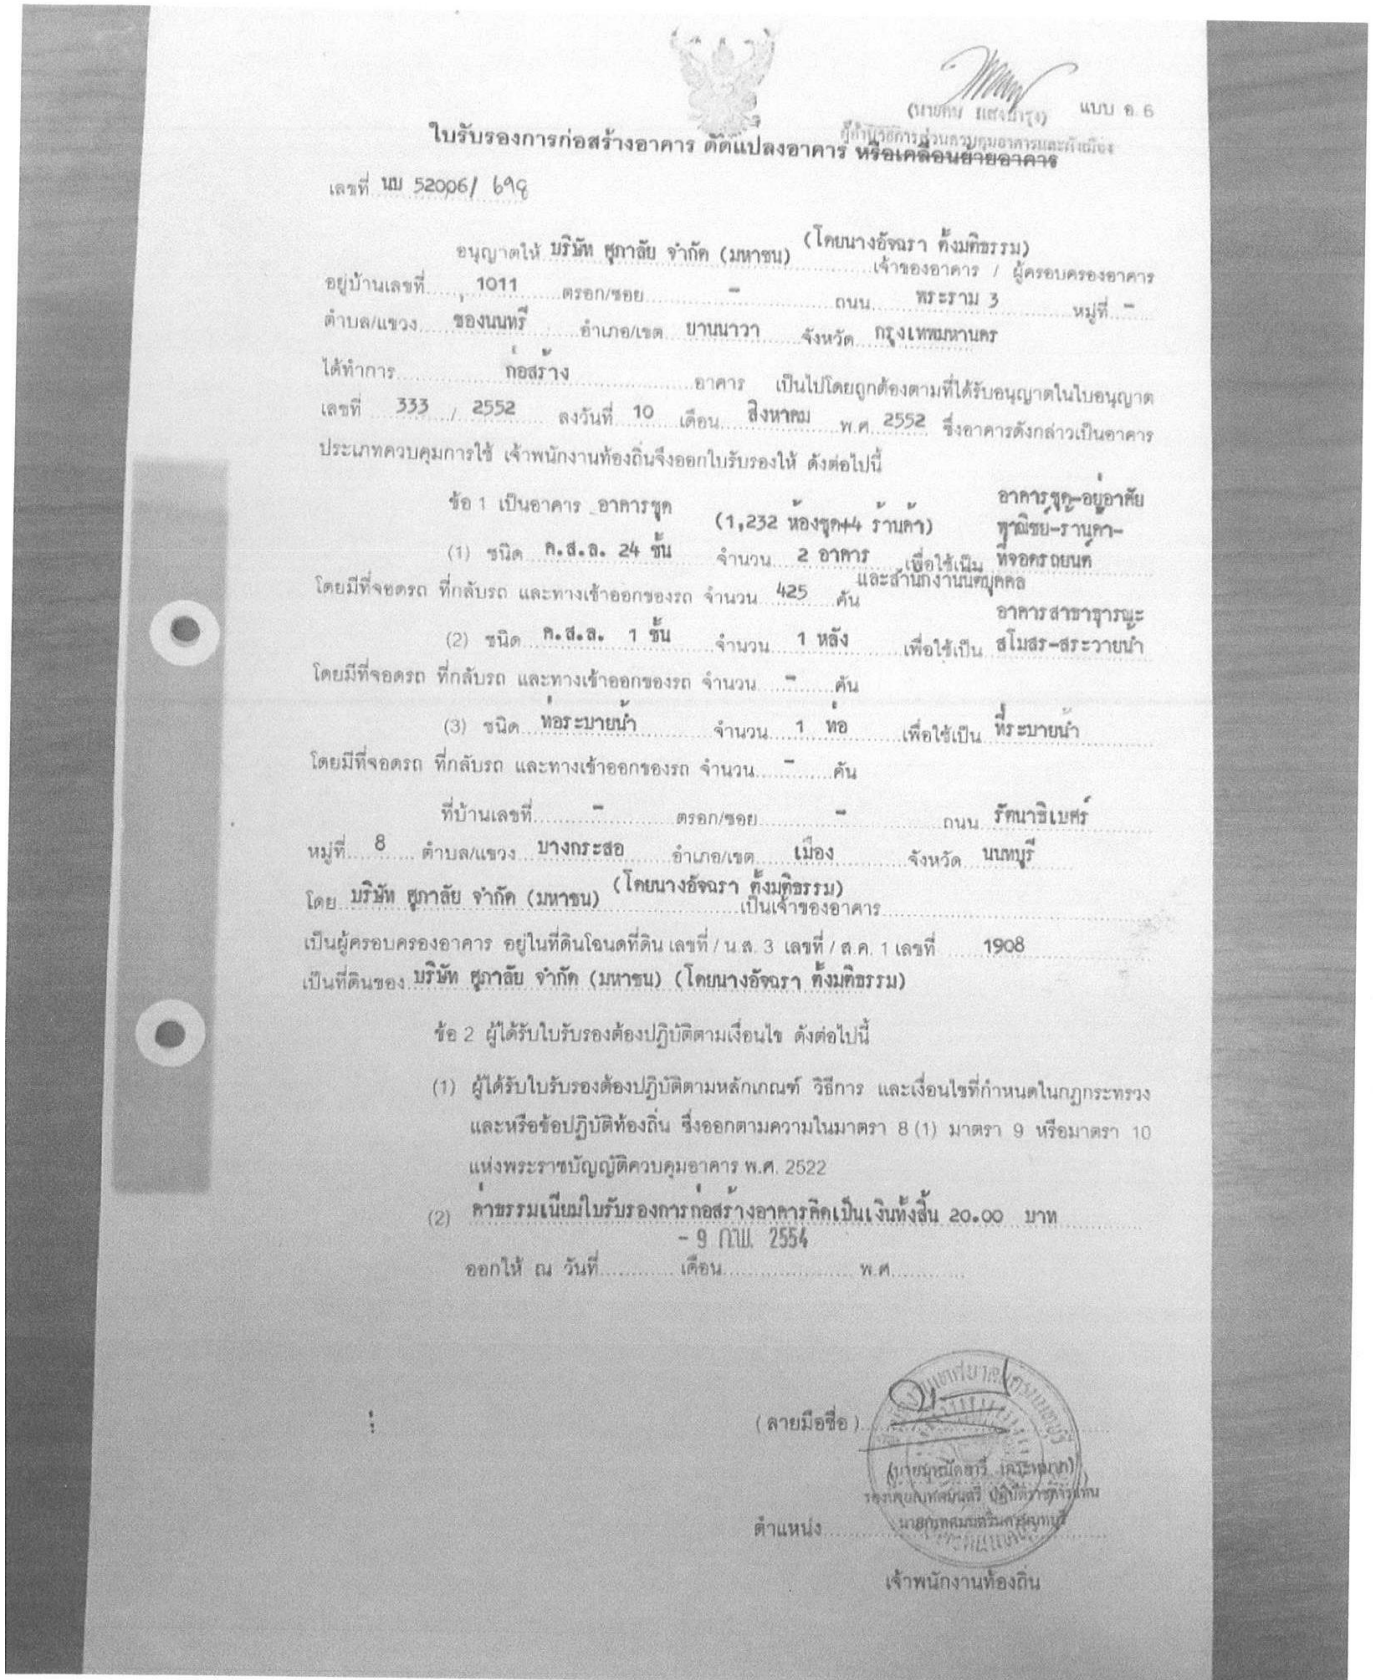 แบบ อ.6
ผู้อำนวยการส่วนควบคุมอาคารและผังเมือง
ใบรับรองการก่อสร้างอาคาร ดัดแปลงอาคาร หรือเคลื่อนย้ายอาคาร
เลขที่ นบ 52006/
(โดยนางอัจฉรา ตั้งมติธรรม)
อนุญาตให้ บริษัท ศุภาลัย จำกัด (มหาชน) เจ้าของอาคาร / ผู้ครอบครองอาคาร
อยู่บ้านเลขที่ 1011 ตรอก/ซอย - ถนน พระราม 3 หมู่ที่ -
ตำบล/แขวง ช่องนนทรี อำเภอ/เขต ยานนาวา จังหวัด กรุงเทพมหานคร
ได้ทำการ ก่อสร้าง อาคาร เป็นไปโดยถูกต้องตามที่ได้รับอนุญาตในใบอนุญาต
เลขที่ 333 / 2552 ลงวันที่ 10 เดือน สิงหาคม พ.ศ. 2552 ซึ่งอาคารดังกล่าวเป็นอาคาร
ประเภทควบคุมการใช้ เจ้าพนักงานท้องถิ่นจึงออกใบรับรองให้ ดังต่อไปนี้
ข้อ 1 เป็นอาคาร อาคารชุด (1,232 ห้องชุด+4 ร้านค้า) อาคารชุด-อยู่อาศัย
พาณิชย์-ร้านค้า-
(1) ชนิด ค.ส.ล. 24 ชั้น จำนวน 2 อาคาร เพื่อใช้เป็น ที่จอดรถยนต์
และสำนักงานนิติบุคคล
โดยมีที่จอดรถ ที่กลับรถ และทางเข้าออกของรถ จำนวน 425 คัน
อาคารสาธารณะ
(2) ชนิด ค.ส.ล. 1 ชั้น จำนวน 1 หลัง เพื่อใช้เป็น สโมสร-สระวายน้ำ
โดยมีที่จอดรถ ที่กลับรถ และทางเข้าออกของรถ จำนวน - คัน
(3) ชนิด ท่อระบายน้ำ จำนวน 1 ท่อ เพื่อใช้เป็น ที่ระบายน้ำ
โดยมีที่จอดรถ ที่กลับรถ และทางเข้าออกของรถ จำนวน - คัน
ที่บ้านเลขที่ - ตรอก/ซอย - ถนน รัตนาธิเบศร์
หมู่ที่ 8 ตำบล/แขวง บางกระสอ อำเภอ/เขต เมือง จังหวัด นนทบุรี
โดย บริษัท ศุภาลัย จำกัด (มหาชน) (โดยนางอัจฉรา ตั้งมติธรรม) เป็นเจ้าของอาคาร
เป็นผู้ครอบครองอาคาร อยู่ในที่ดินโฉนดที่ดิน เลขที่ / น.ส. 3 เลขที่ / ส.ค. 1 เลขที่ 1908
เป็นที่ดินของ บริษัท ศุภาลัย จำกัด (มหาชน) (โดยนางอัจฉรา ตั้งมติธรรม)
ข้อ 2 ผู้ได้รับใบรับรองต้องปฏิบัติตามเงื่อนไข ดังต่อไปนี้
(1) ผู้ได้รับใบรับรองต้องปฏิบัติตามหลักเกณฑ์ วิธีการ และเงื่อนไขที่กำหนดในกฎกระทรวง
และหรือข้อปฏิบัติท้องถิ่น ซึ่งออกตามความในมาตรา 8 (1) มาตรา 9 หรือมาตรา 10
แห่งพระราชบัญญัติควบคุมอาคาร พ.ศ. 2522
(2) ค่าธรรมเนียมใบรับรองการก่อสร้างอาคารคิดเป็นเงินทั้งสิ้น 20.00 บาท
- 9 ก.พ. 2554
ออกให้ ณ วันที่ เดือน พ.ศ.
( ลายมือชื่อ )
รองนายกเทศมนตรี ปฏิบัติราชการแทน
ตำแหน่ง นายกเทศมนตรีนครนนทบุรี
เจ้าพนักงานท้องถิ่น